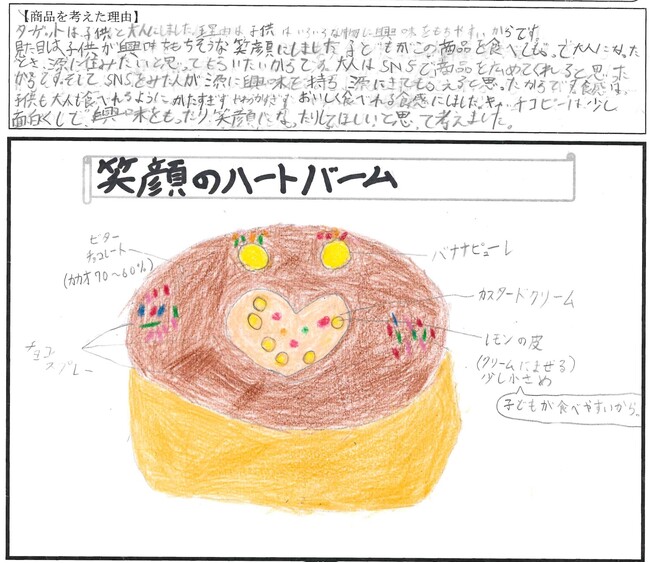 【商品を考えた理由】
ターゲットは子供と大人にしました。理由は子供はいろいろな物に興味をもちやすいからです。
見た目は子供が興味をもちそうな笑顔にしました。子どもがこの商品を食べてもらって大人になった
とき、源に住みたいと思ってもらいたいからです。大人はSNSで商品を広めてくれると思った
からです。そしてSNSをみた人が源に興味を持ち源にきてもらえると思ったからです。食感は、
子供も大人も食べれるようにかたすぎずやわらかすぎずおいしく食べれる食感にしました。キャッチコピーは少し
面白くして、興味をもったり、笑顔になったりしてほしいと思って考えました。
笑顔のハートバーム
ビター
チョコレート
(カカオ70〜60%)
バナナピューレ
カスタードクリーム
チョコ
スプレー
レモンの皮
(クリームにまぜる)
少し小さめ
子どもが食べやすいから。